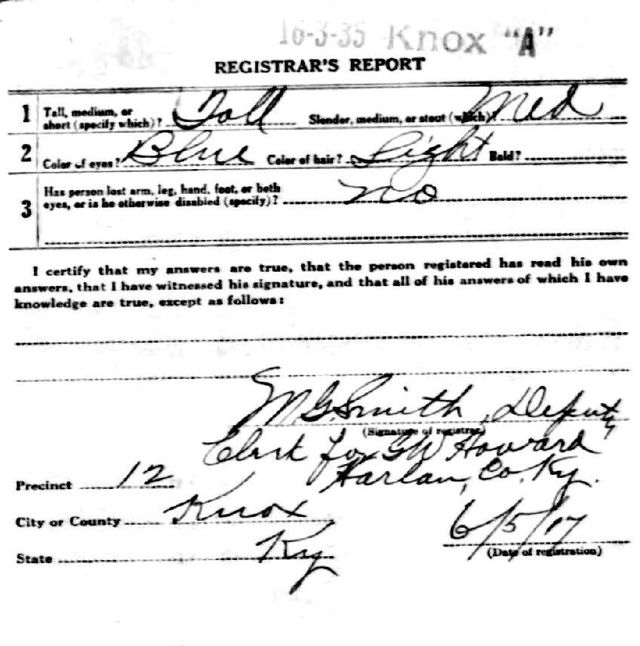 16-3-35 Knox "A"
REGISTRAR'S REPORT
1 Tall, medium, or short (specify which)? Tall Slender, medium, or stout (which)? Med
2 Color of eyes? Blue Color of hair? Light Bald?
3 Has person lost arm, leg, hand, foot, or both
eyes, or is he otherwise disabled (specify)? no
I certify that my answers are true, that the person registered has read his own
answers, that I have witnessed his signature, and that all of his answers of which I have
knowledge are true, except as follows:
M G Smith, Deputy
(Signature of registrar)
Clerk for GW Howard
Harlan, Co. Ky.
Precinct 12
City or County Knox
State Ky
6/5/17
(Date of registration)